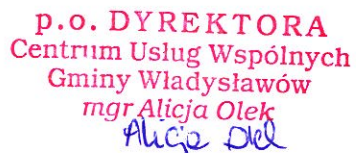 p.o. DYREKTORA
Centrum Usług Wspólnych
Gminy Władysławów
mgr Alicja Olek
Alicja Olek